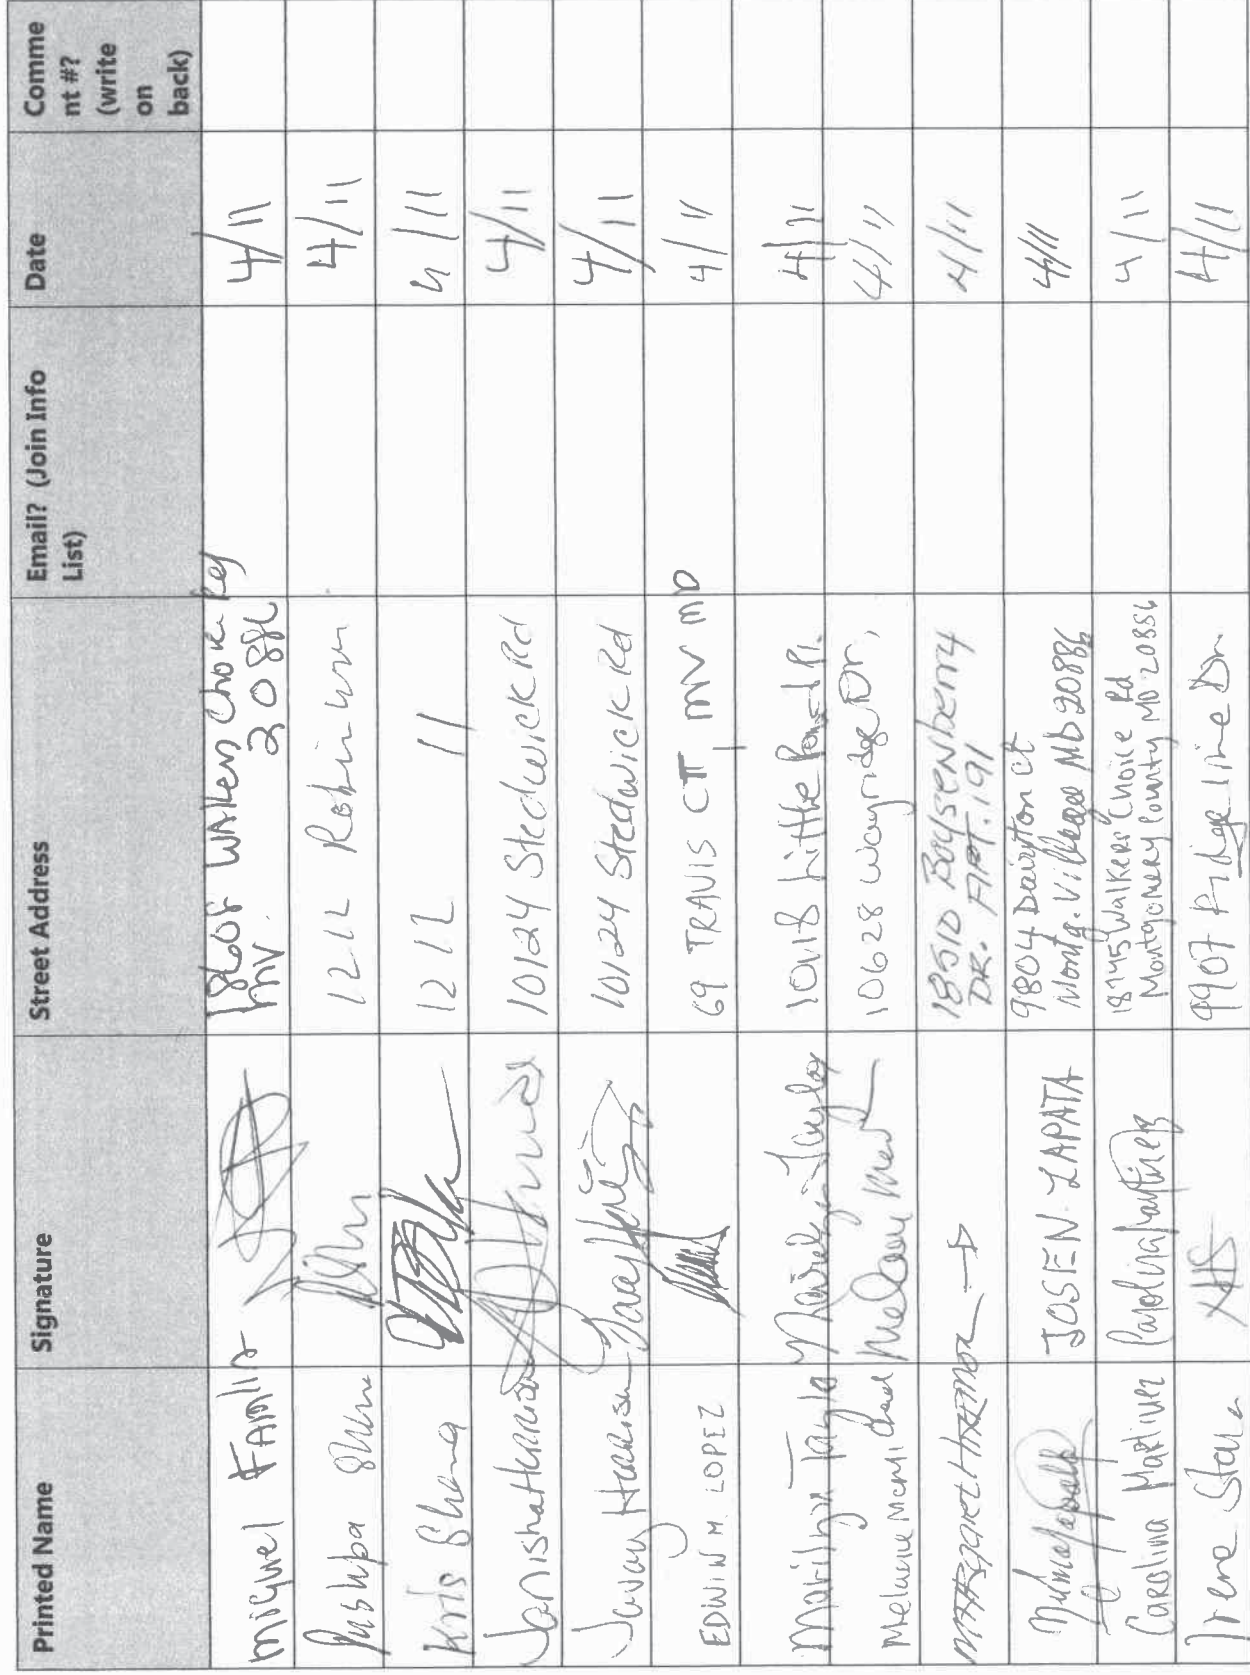 Printed Name Signature Street Address Email? (Join Info List) Date Comme nt #? (write on back)
Miguel FAMiliA 18608 WAlkers Choice 4/11
MV. 20886
Pushpa 1212 Robin 4/11
Kris 1212 11 4/11
Janisha Harrison 10124 Stedwick Rd 4/11
Javay Harrison 10124 Stedwick Rd 4/11
EDWIN M. LOPEZ 69 TRAVIS CT, MV MD 4/11
Marilyn Taylo Marilyn Taylor 10118 Little Pond Pl. 4/11
Melanie 10628 Wayridge Dr, 4/11
MARGARET HARMON 18510 BOYSENBERRY 4/11
DR. APT. 191
JOSE N. ZAPATA 9804 Dairyton Ct 4/11
Montg. Village Md 20886
CAROLINA MARTINEZ Carolina Martinez 18745 Walkers Choice Rd 4/11
Montgomery County MD 20886
Irene Star 9907 Ridge line Dr. 4/11